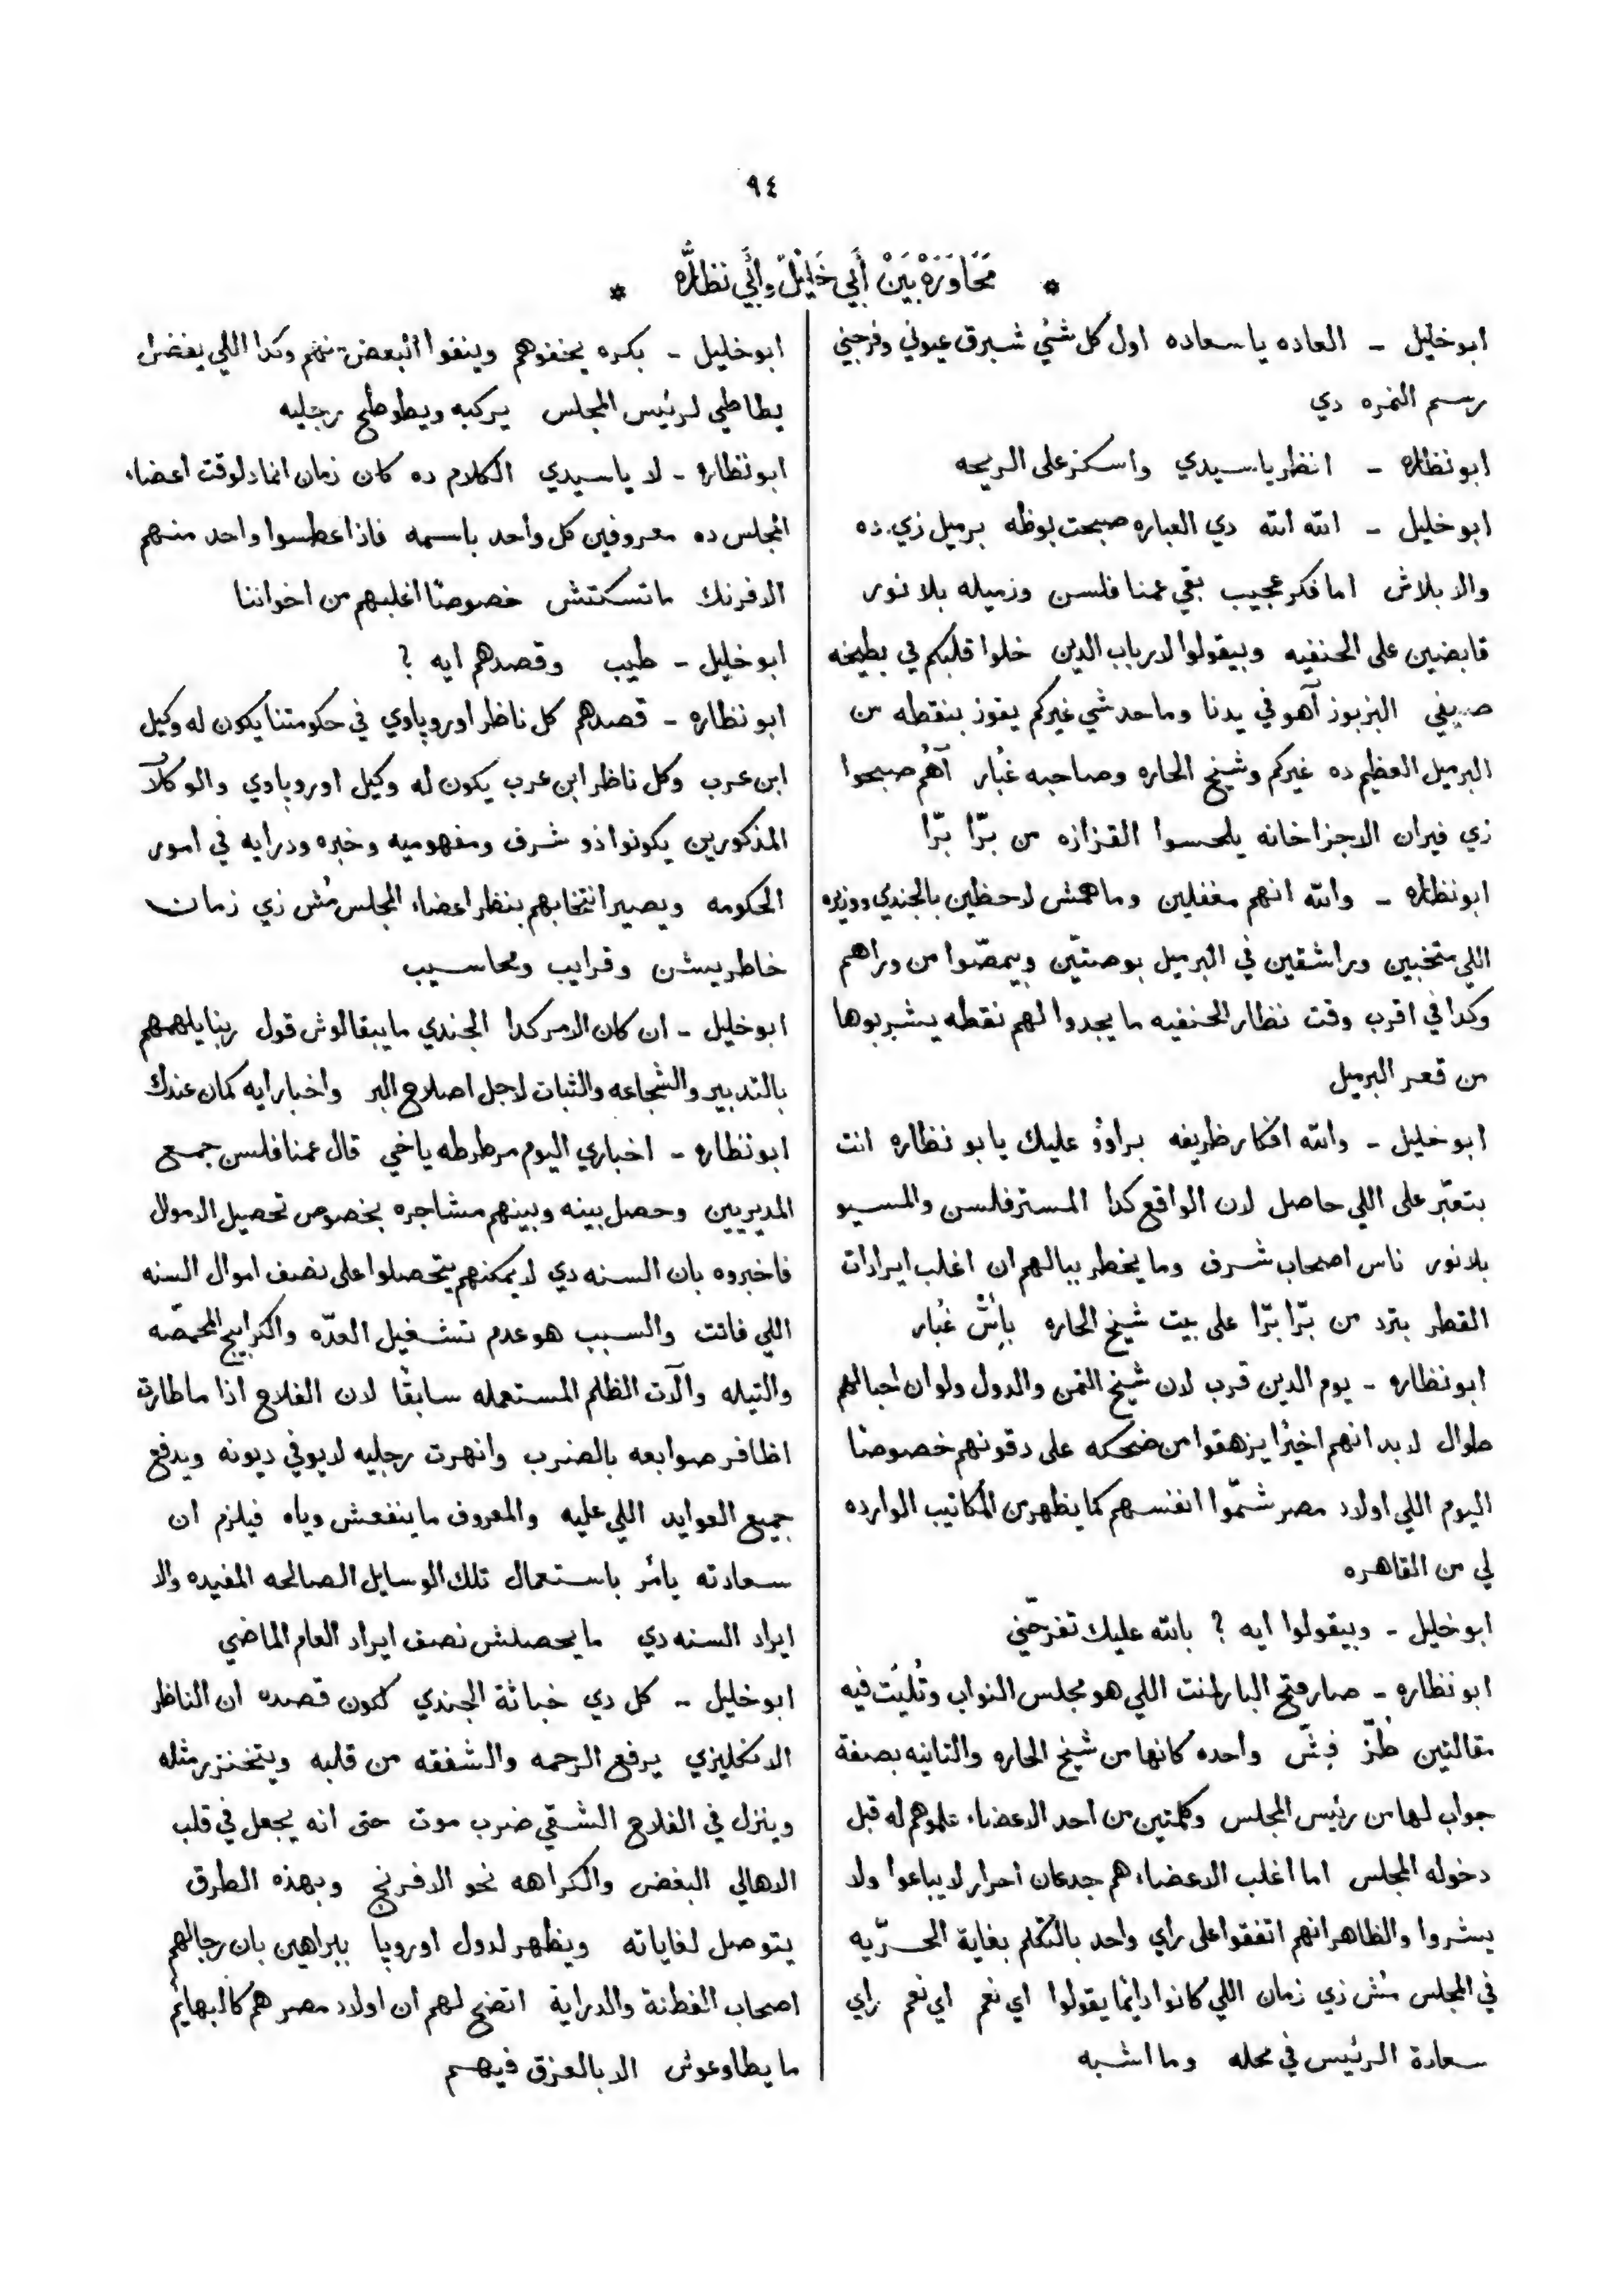 ٩٤
* مَحَاوَرَهْ بَيَنْ أَبِي خَلِيْلْ وأَبِي نظَارَّه *
ابو خليل - العاده يا سعاده اول كل شئ شبرق عيوني وفرجني
رسم النمره دي
ابو نظاره - انظر يا سيدي واسكز على الريحه
ابو خليل - الله الله دي العباره صبحت بوظه برميل زي ده
والا بلاش اما فكر عجيب بقي عمنا فلسن وزميله بلانور
قابضين على الحنفيه وبيقولوا لارباب الدين خلوا قلبكم في بطيخه
صيفي البزبوز آهو في يدنا وما حدشي غيركم يفوز بنقطه من
البرميل العظيم ده غيركم وشيخ الحاره وصاحبه غُبار آهُم صبحوا
زي فيران الاجزاخانه يلحسوا القزازه من برّا برّا
ابو نظاره - والله انهم مغفلين وماهمش لاحظين بالجندي ووزيره
اللي متخبين وراشقين في البرميل بوصتّين وبيمصّوا من وراهم
وكدا في اقرب وقت نظار الحنفيه ما يجدوا لهم نقطه يشربوها
من قعر البرميل
ابو خليل - والله افكار ظريفه براوُو عليك يابو نظاره انت
بتعبّر على اللي حاصل لان الواقع كدا المستر فلسن والمسيو
بلانور ناس اصحاب شرف وما يخطر ببالهم ان اغلب ايرادات
القطر بترد من برّا برّا على بيت شيخ الحاره بإشّ غُبار
ابو نظاره - يوم الدين قرب لان شيخ التمن والدول ولو ان احبالهم
طوال لا بد انهم اخيرًا يزهقوا من ضحكه على دقونهم خصوصًا
اليوم اللي اولاد مصر شمّوا انفسهم كما يظهر من المكاتيب الوارده
لي من القاهره
ابو خليل - وبيقولوا ايه ? بالله عليك تفرجّني
ابو نظاره - صار فتح البارلمنت اللي هو مجلس النواب وتُليَت فيه
مقالتين طُزّ فِشّ واحده كانها من شيخ الحاره والتانيه بصفة
جواب لها من رئيس المجلس وكلمتين من احد الاعضاء علموهم له قبل
دخوله المجلس اما اغلب الاعضاء هم جدعان احرار لا يباعوا ولا
يشروا والظاهر انهم اتفقوا على راي واحد بالتكلم بغاية الحرّيه
في المجلس مُش زي زمان اللي كانوا دائمًا يقولوا اي نعم اي نعم راي
سعادة الرئيس في محله وما اشبه
ابو خليل - بكره يخنفوهم وينفوا البعض منهم وكدا اللي يفضل
يطاطي لرئيس المجلس يركبه ويطوطح رجليه
ابو نظاره - لا يا سيدي الكلام ده كان زمان انما دلوقت اعضاء
المجلس ده معروفين كل واحد باسمه فاذا عطسوا واحد منهم
الافرنك ماتسكتش خصوصًا اغلبهم من اخواننا
ابو خليل - طيب وقصدهم ايه ?
ابو نظاره - قصدهم كل ناظر اوروپاوي في حكومتنا يكون له وكيل
ابن عرب وكل ناظر ابن عرب يكون له وكيل اوروپاوي والوكلآ
المذكورين يكونوا ذو شرف ومفهوميه وخبره ودرايه في امور
الحكومه ويصير انتخابهم بنظر اعضاء المجلس مُش زي زمان
خاطريشن وقرايب ومحاسيب
ابو خليل - ان كان الامر كدا الجندي مايبقالوش قول ربنا يلهمهم
بالتدبير والشجاعه والثبات لاجل اصلاح البر واخبار ايه كمان عندك
ابو نظاره - اخباري اليوم مرطرطه ياخي قال عمنا فلسن جمع
المديريين وحصل بينه وبينهم مشاجره بخصوص تحصيل الاموال
فاخبروه بان السنه دي لا يمكنهم يتحصلوا على نصف اموال السنه
اللي فاتت والسبب هو عدم تشغيل العدّه والكرابيج المحمصّه
والتيله وآلات الظلم المستعمله سابقًا لان الفلاح اذا ما طارت
اظافر صوابعه بالضرب وانهرت رجليه لا يوفي ديونه ويدفع
جميع العوايد اللي عليه والمعروف ما ينفعش وياه فيلزم ان
سعادته يأمر باستعمال تلك الوسايل الصالحه المفيده والا
ايراد السنه دي ما يحصلش نصف ايراد العام الماضي
ابو خليل - كل دي خباثة الجندي لكون قصده ان الناظر
الانكليزي يرفع الرحمه والشفقه من قلبه ويتخنزر مثله
وينزل في الفلاح الشقي ضرب موت حتى انه يجعل في قلب
الاهالي البغض والكراهه نحو الافرنج وبهذه الطرق
يتوصل لغاياته ويظهر لدول اوروپا ببراهين بان رجالهم
اصحاب الفطنة والدراية اتضح لهم ان اولاد مصر هم كالبهائم
ما يطاوعوش الا بالعزق فيهم